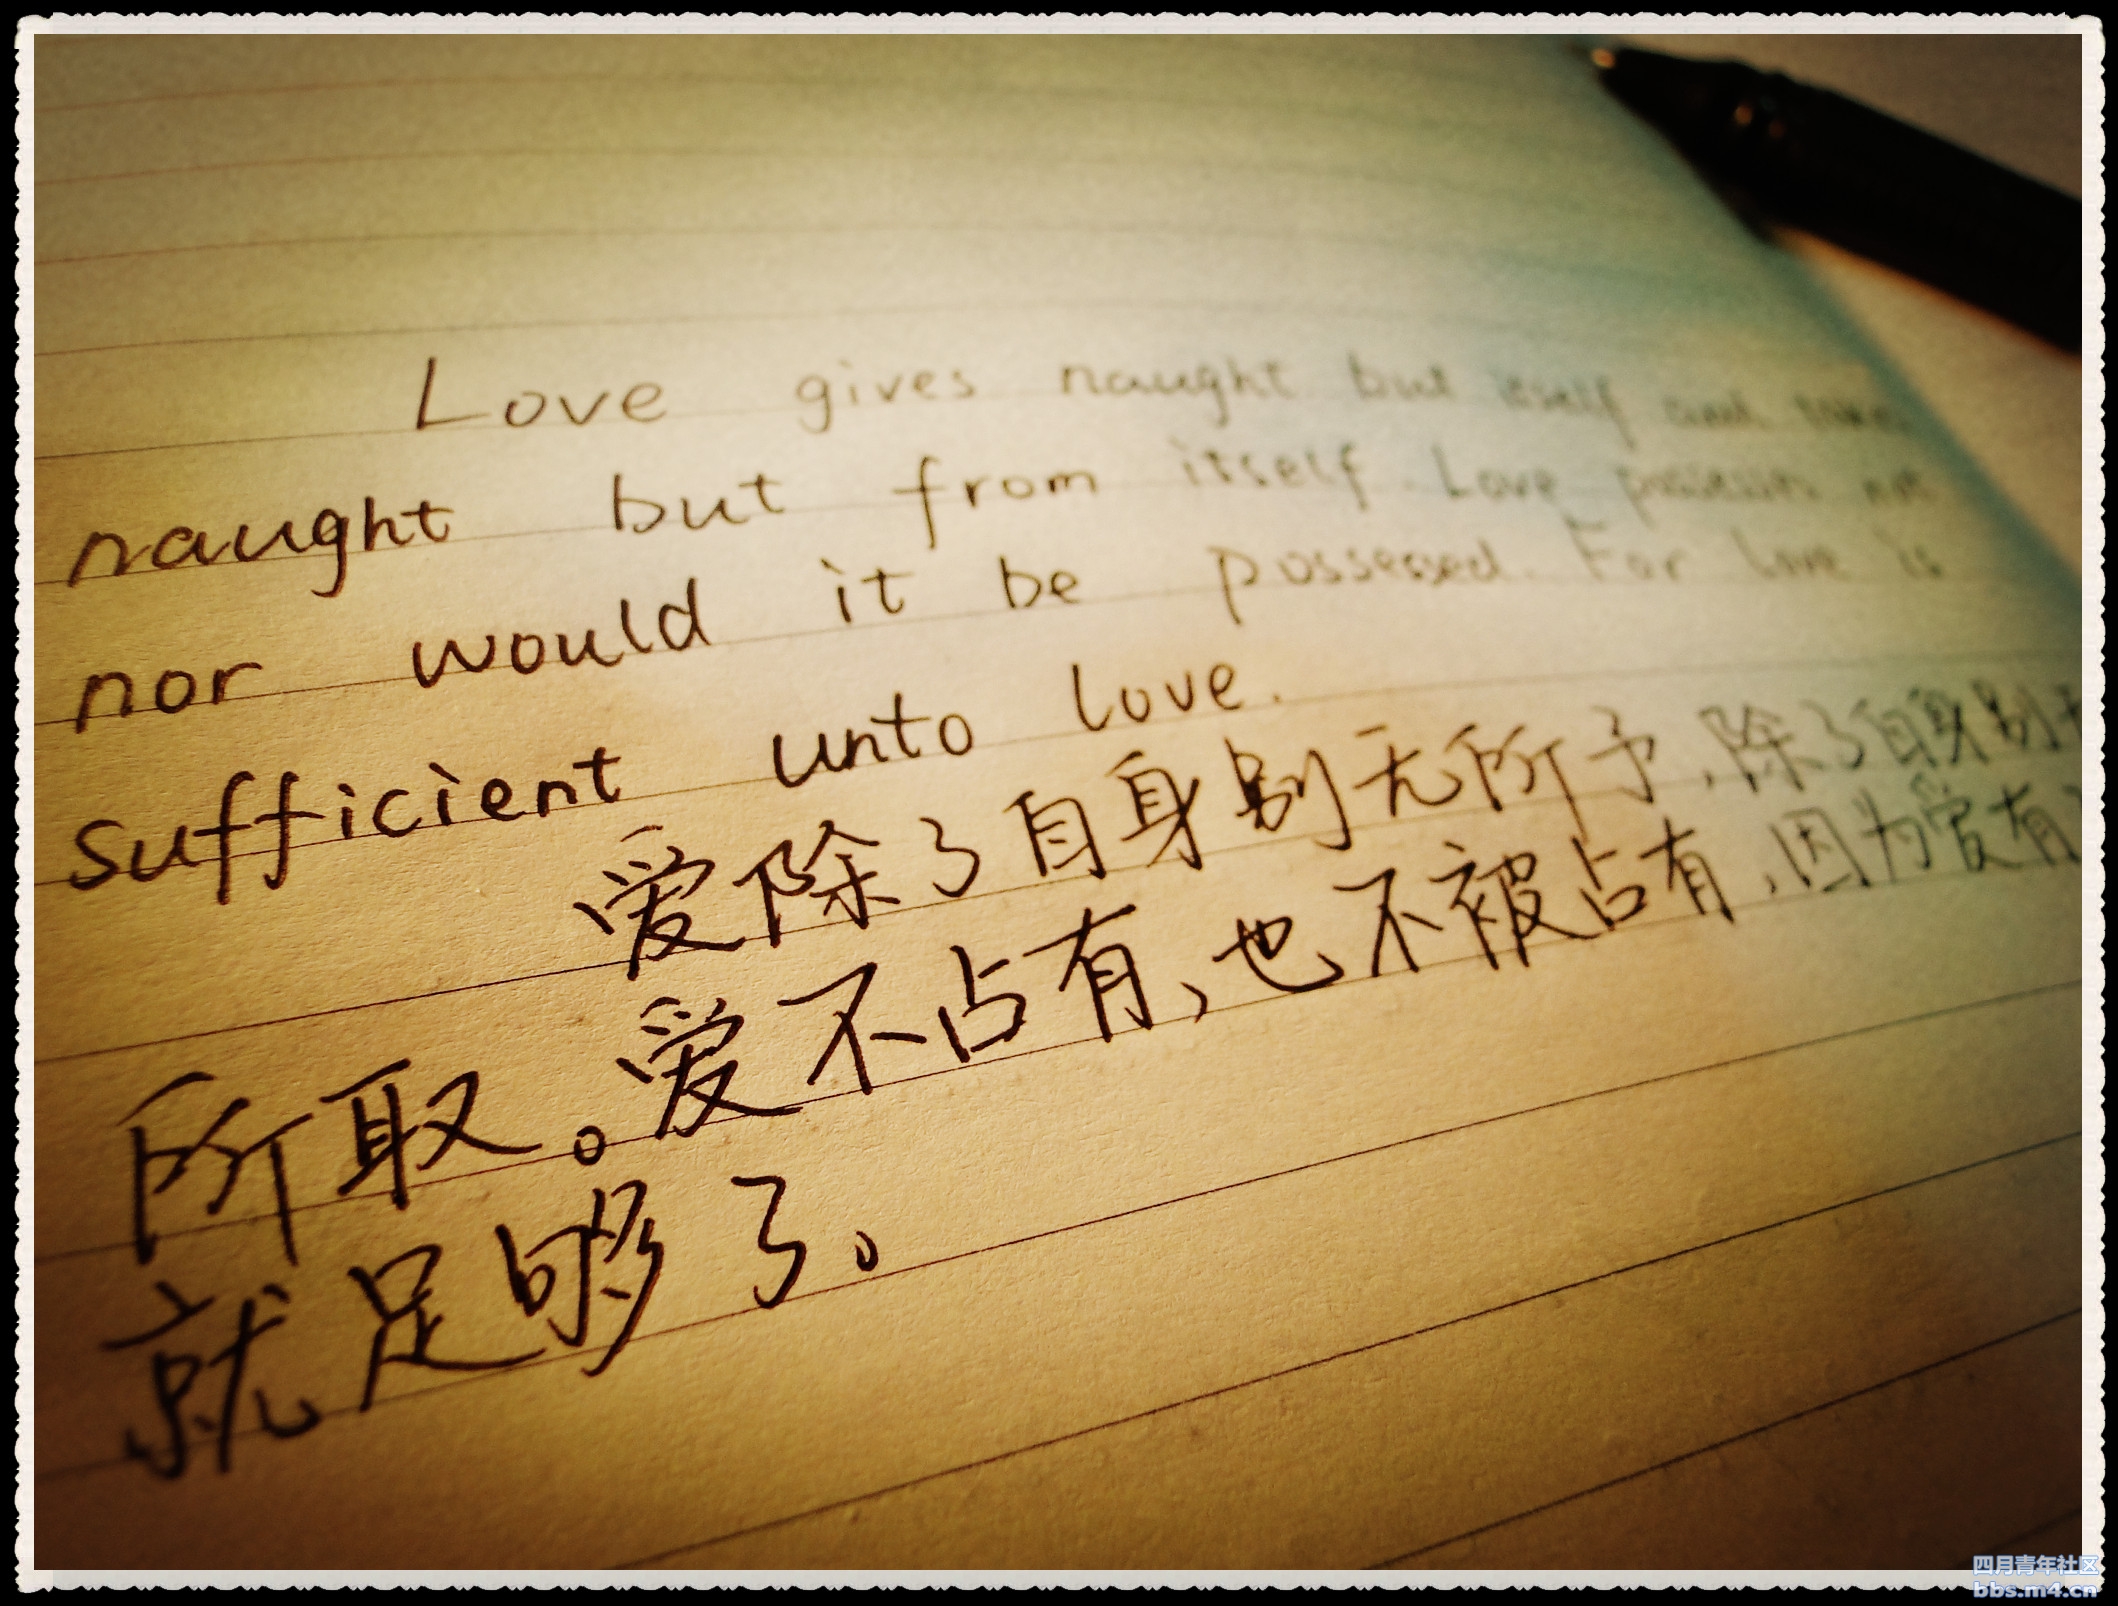 Love gives naught but itself and takes
naught but from itself. Love possesses not
nor would it be possessed. For love is
sufficient unto love.
爱除了自身别无所予,除了自身别
所取。爱不占有,也不被占有,因为爱有
就足够了。
四月青年社区
bbs.m4.cn